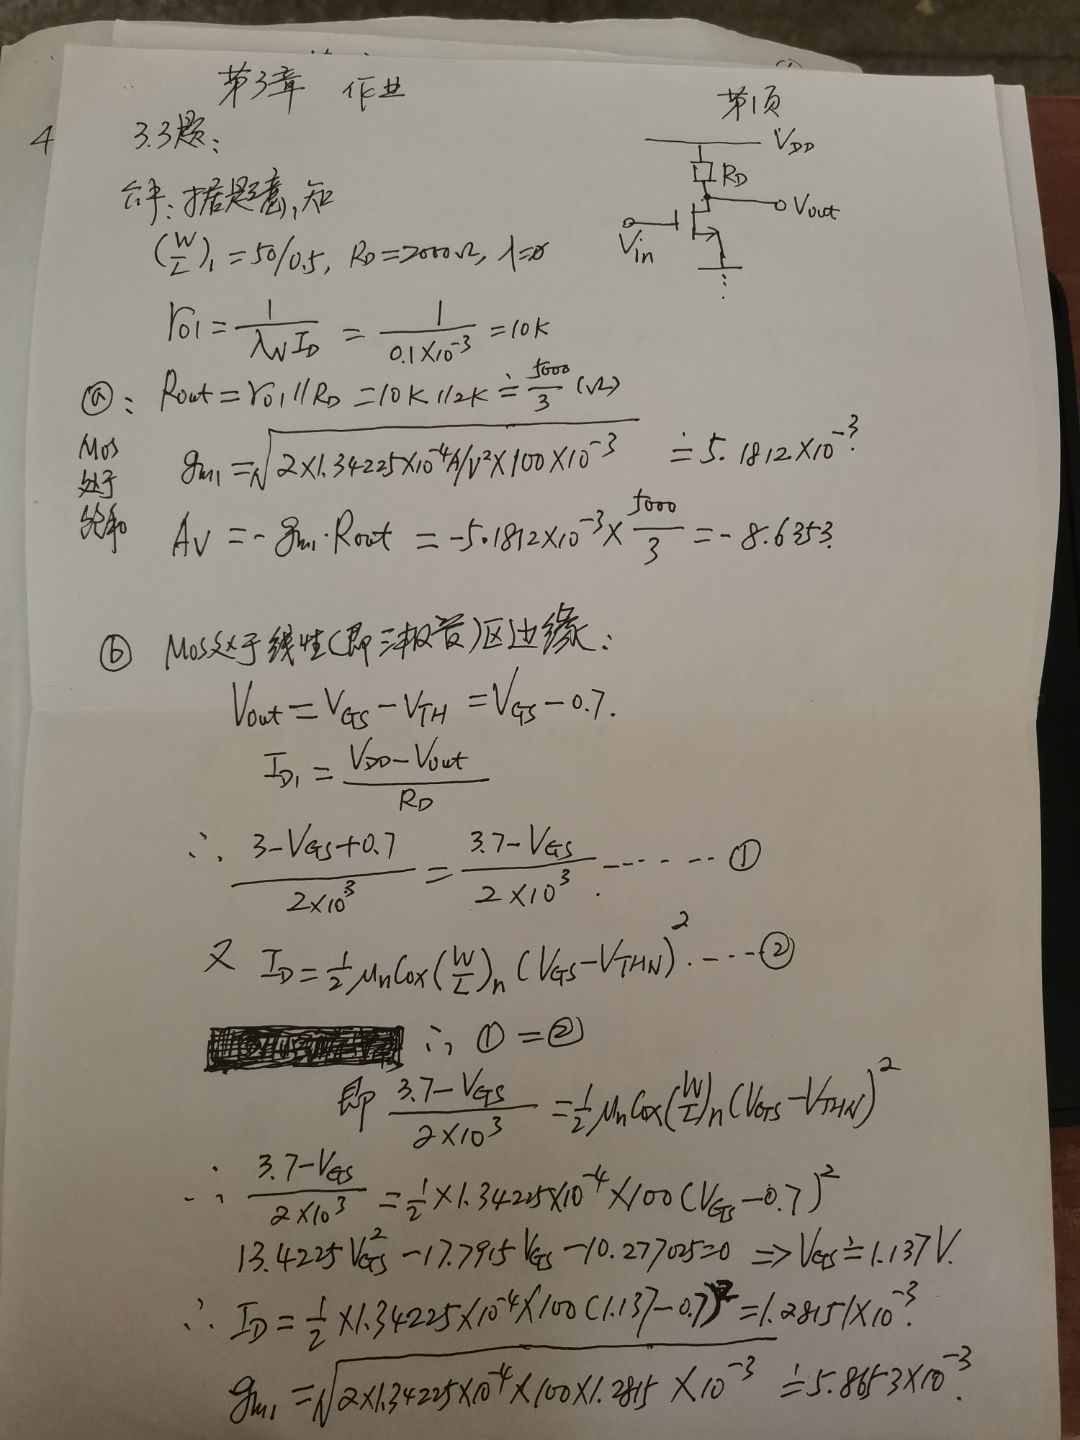 第3章 作业
第1页
4
3.3题:
解:据题意,知
(W/L)₁ = 50/0.5, R_D = 2000Ω, λ=0
V_DD
R_D
Vout
Vin
r₀₁ = 1/(λ_N I_D) = 1/(0.1×10⁻³) = 10K
ⓐ: Rout = r₀₁//R_D = 10K//2K ≐ 5000/3 (Ω)
MOS
处于
饱和
g_m1 = √(2×1.34225×10⁻⁴A/V²×100×10⁻³) ≐ 5.1812×10⁻³
A_V = -g_m1·Rout = -5.1812×10⁻³×5000/3 = -8.6353.
ⓑ MOS处于线性(即三极管)区边缘:
Vout = V_GS - V_TH = V_GS - 0.7.
I_D1 = (V_DD - Vout)/R_D
∴ (3-V_GS+0.7)/(2×10³) = (3.7-V_GS)/(2×10³) ······ ①
又 I_D = ½ μnCox(W/L)n (V_GS - V_THN)². ···· ②
∴ ① = ②
即 (3.7-V_GS)/(2×10³) = ½ μnCox(W/L)n (V_GS - V_THN)²
∴ (3.7-V_GS)/(2×10³) = ½×1.34225×10⁻⁴×100(V_GS-0.7)²
13.4225V_GS² - 17.7915V_GS - 10.277025=0 ⇒ V_GS ≐ 1.137V.
∴ I_D = ½×1.34225×10⁻⁴×100(1.137-0.7)² = 1.28151×10⁻³.
g_m1 = √(2×1.34225×10⁻⁴×100×1.2815×10⁻³) ≐ 5.8653×10⁻³.